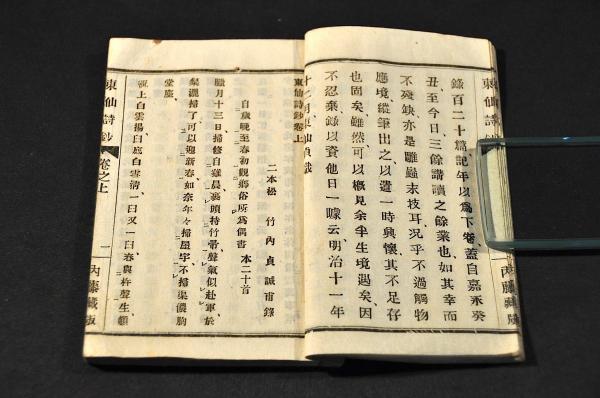 東仙詩鈔
錄百二十篇記年以爲下卷蓋自嘉永癸
丑至今日三餘講讀之餘業也如其幸而
不殘缺亦是雕蟲末技耳況乎不過觸物
應境縱筆出之以遣一時興懷其不足存
也固矣雖然可以概見余半生境遇矣因
不忍棄錄以資他日一噱云明治十一年
十二月東仙貞識
內藤藏版
東仙詩鈔卷上
二本松 竹內貞誠甫錄
自歲晚至春初觀鄉俗所爲偶書 本二十首
臘月十三日掃修自雞晨裹頭持竹帚聲氣似赴軍於
菜灑掃了可以迎新春如奈年々掃屋宇不掃渠儂胸
堂塵
祝上白雲揚臼底白雪清一臼又一臼春與杵聲生
東仙詩鈔
卷之上
一
內藤藏版